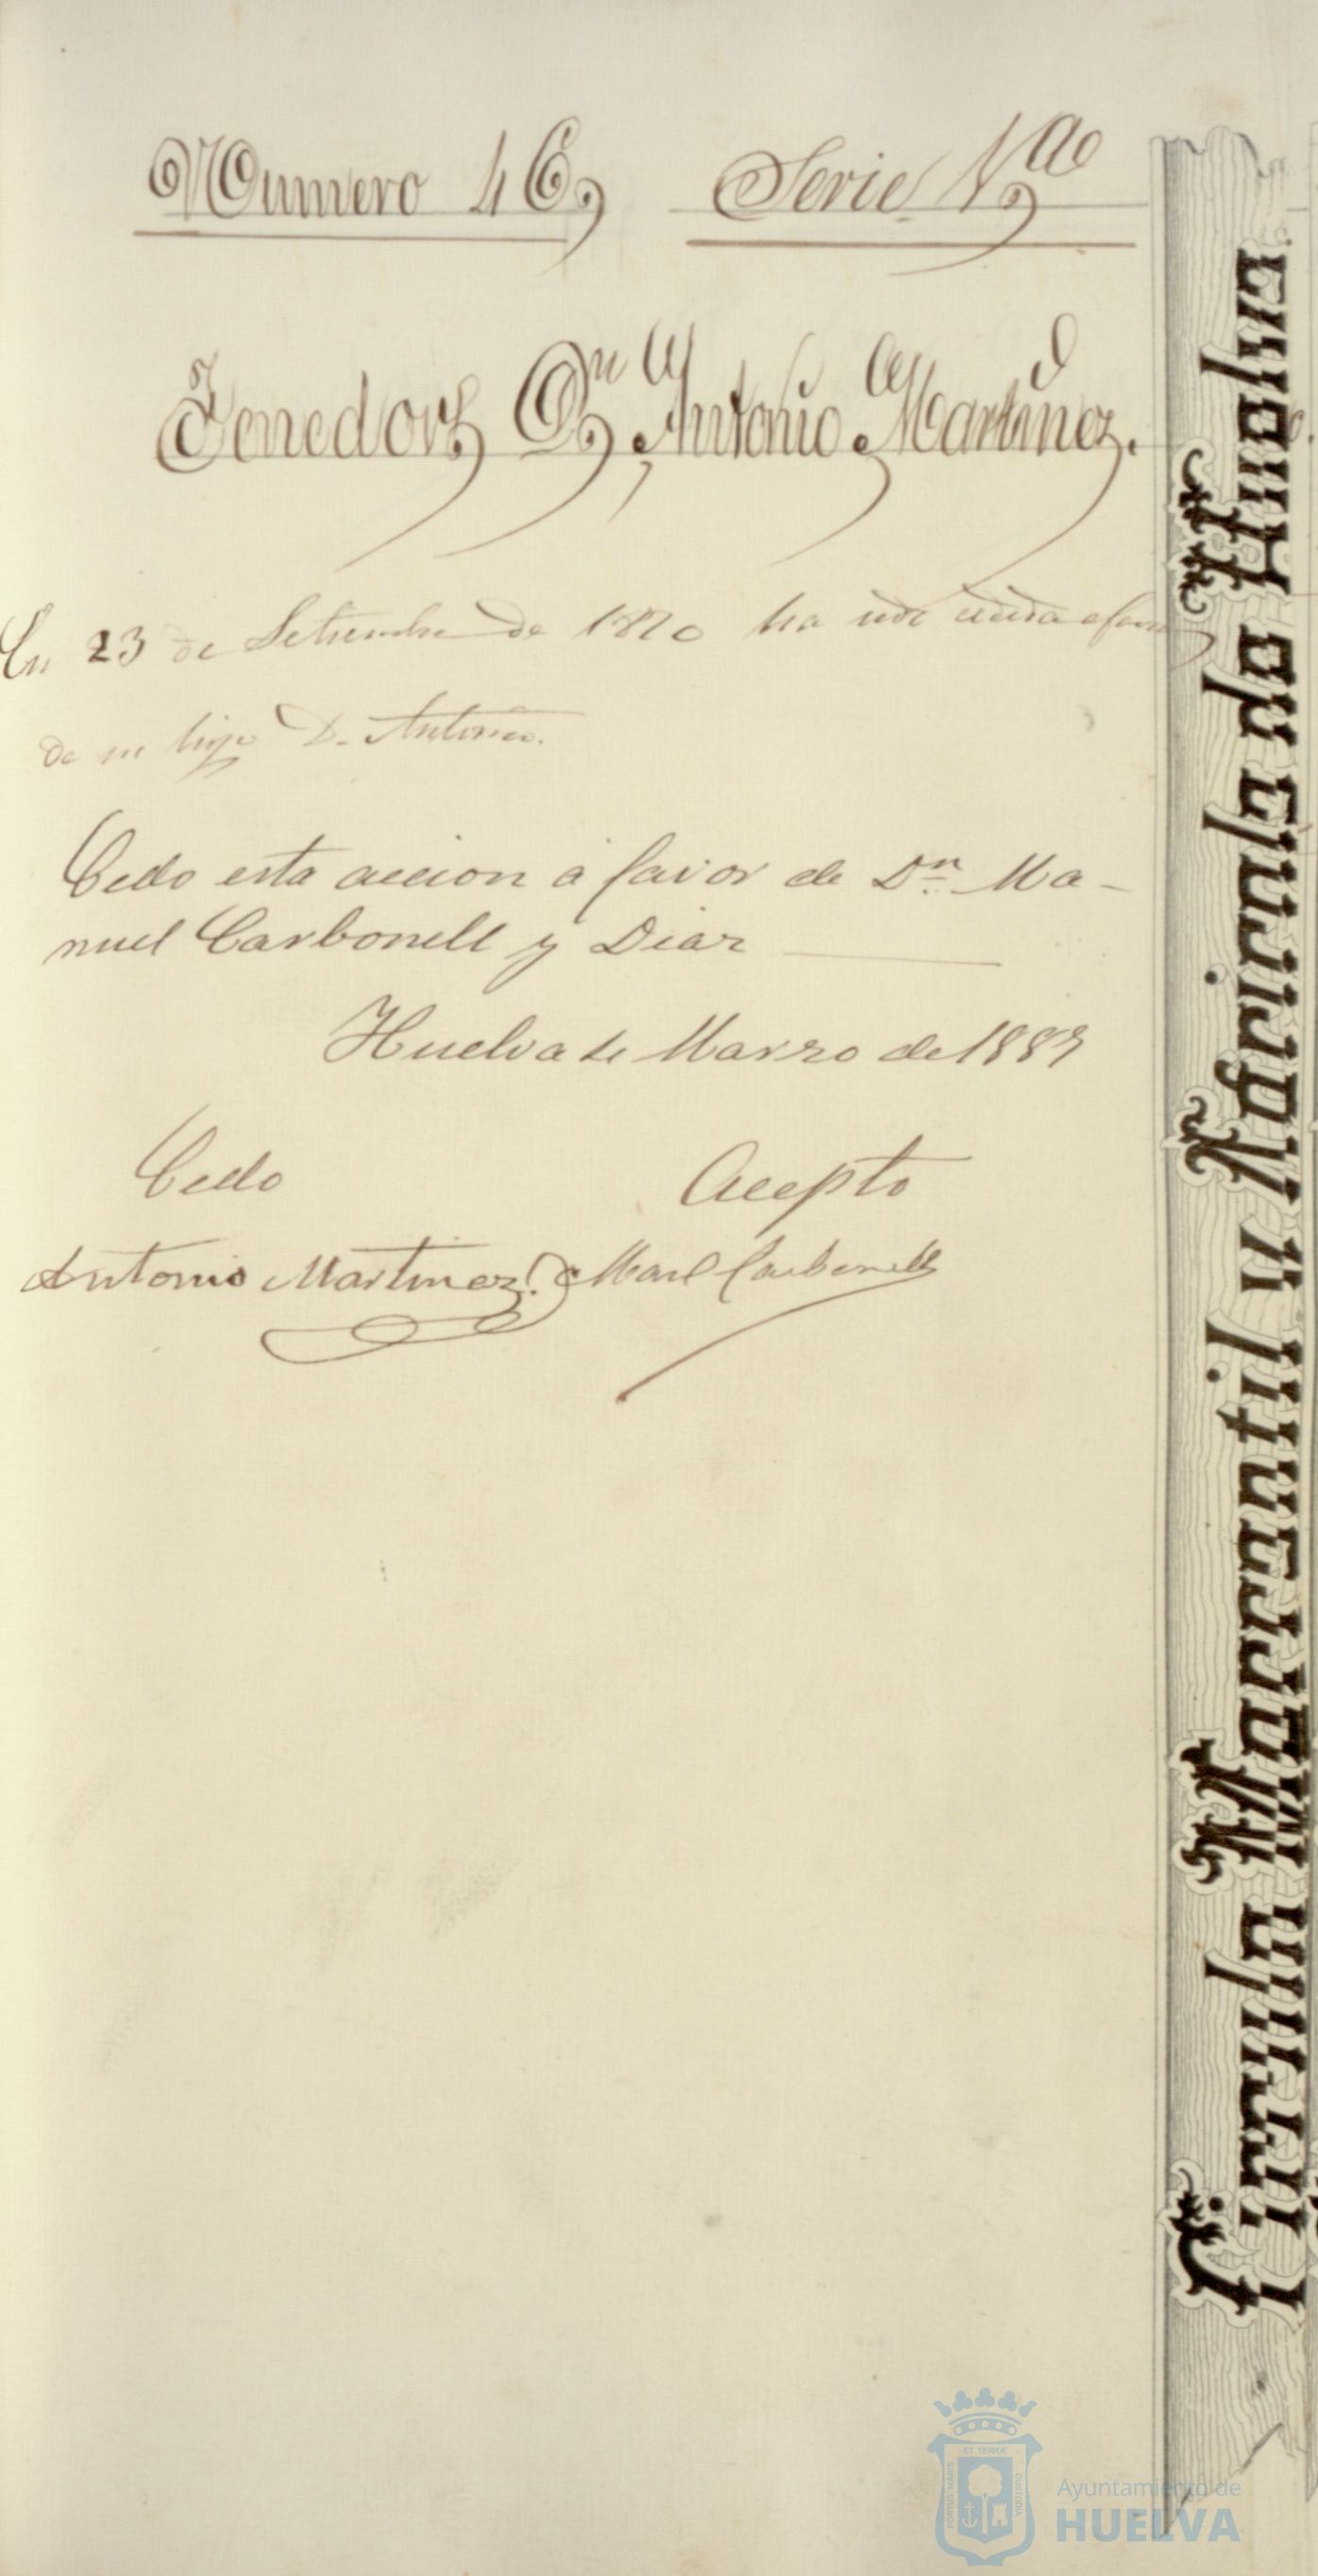 Numero 46, Serie 1ª
Tenedor, Dn Antonio Martinez.
En 23 de Setiembre de 1870 ha sido cedida a favor
de su hijo D. Antonio.
Cedo esta accion a favor de Dn Ma-
nuel Carbonell y Diaz
Huelva de Marzo de 1889
Cedo Acepto
Antonio Martinez Manl Carbonell
Junta Mercantil y Agricola de Huelva
Ayuntamiento de
HUELVA